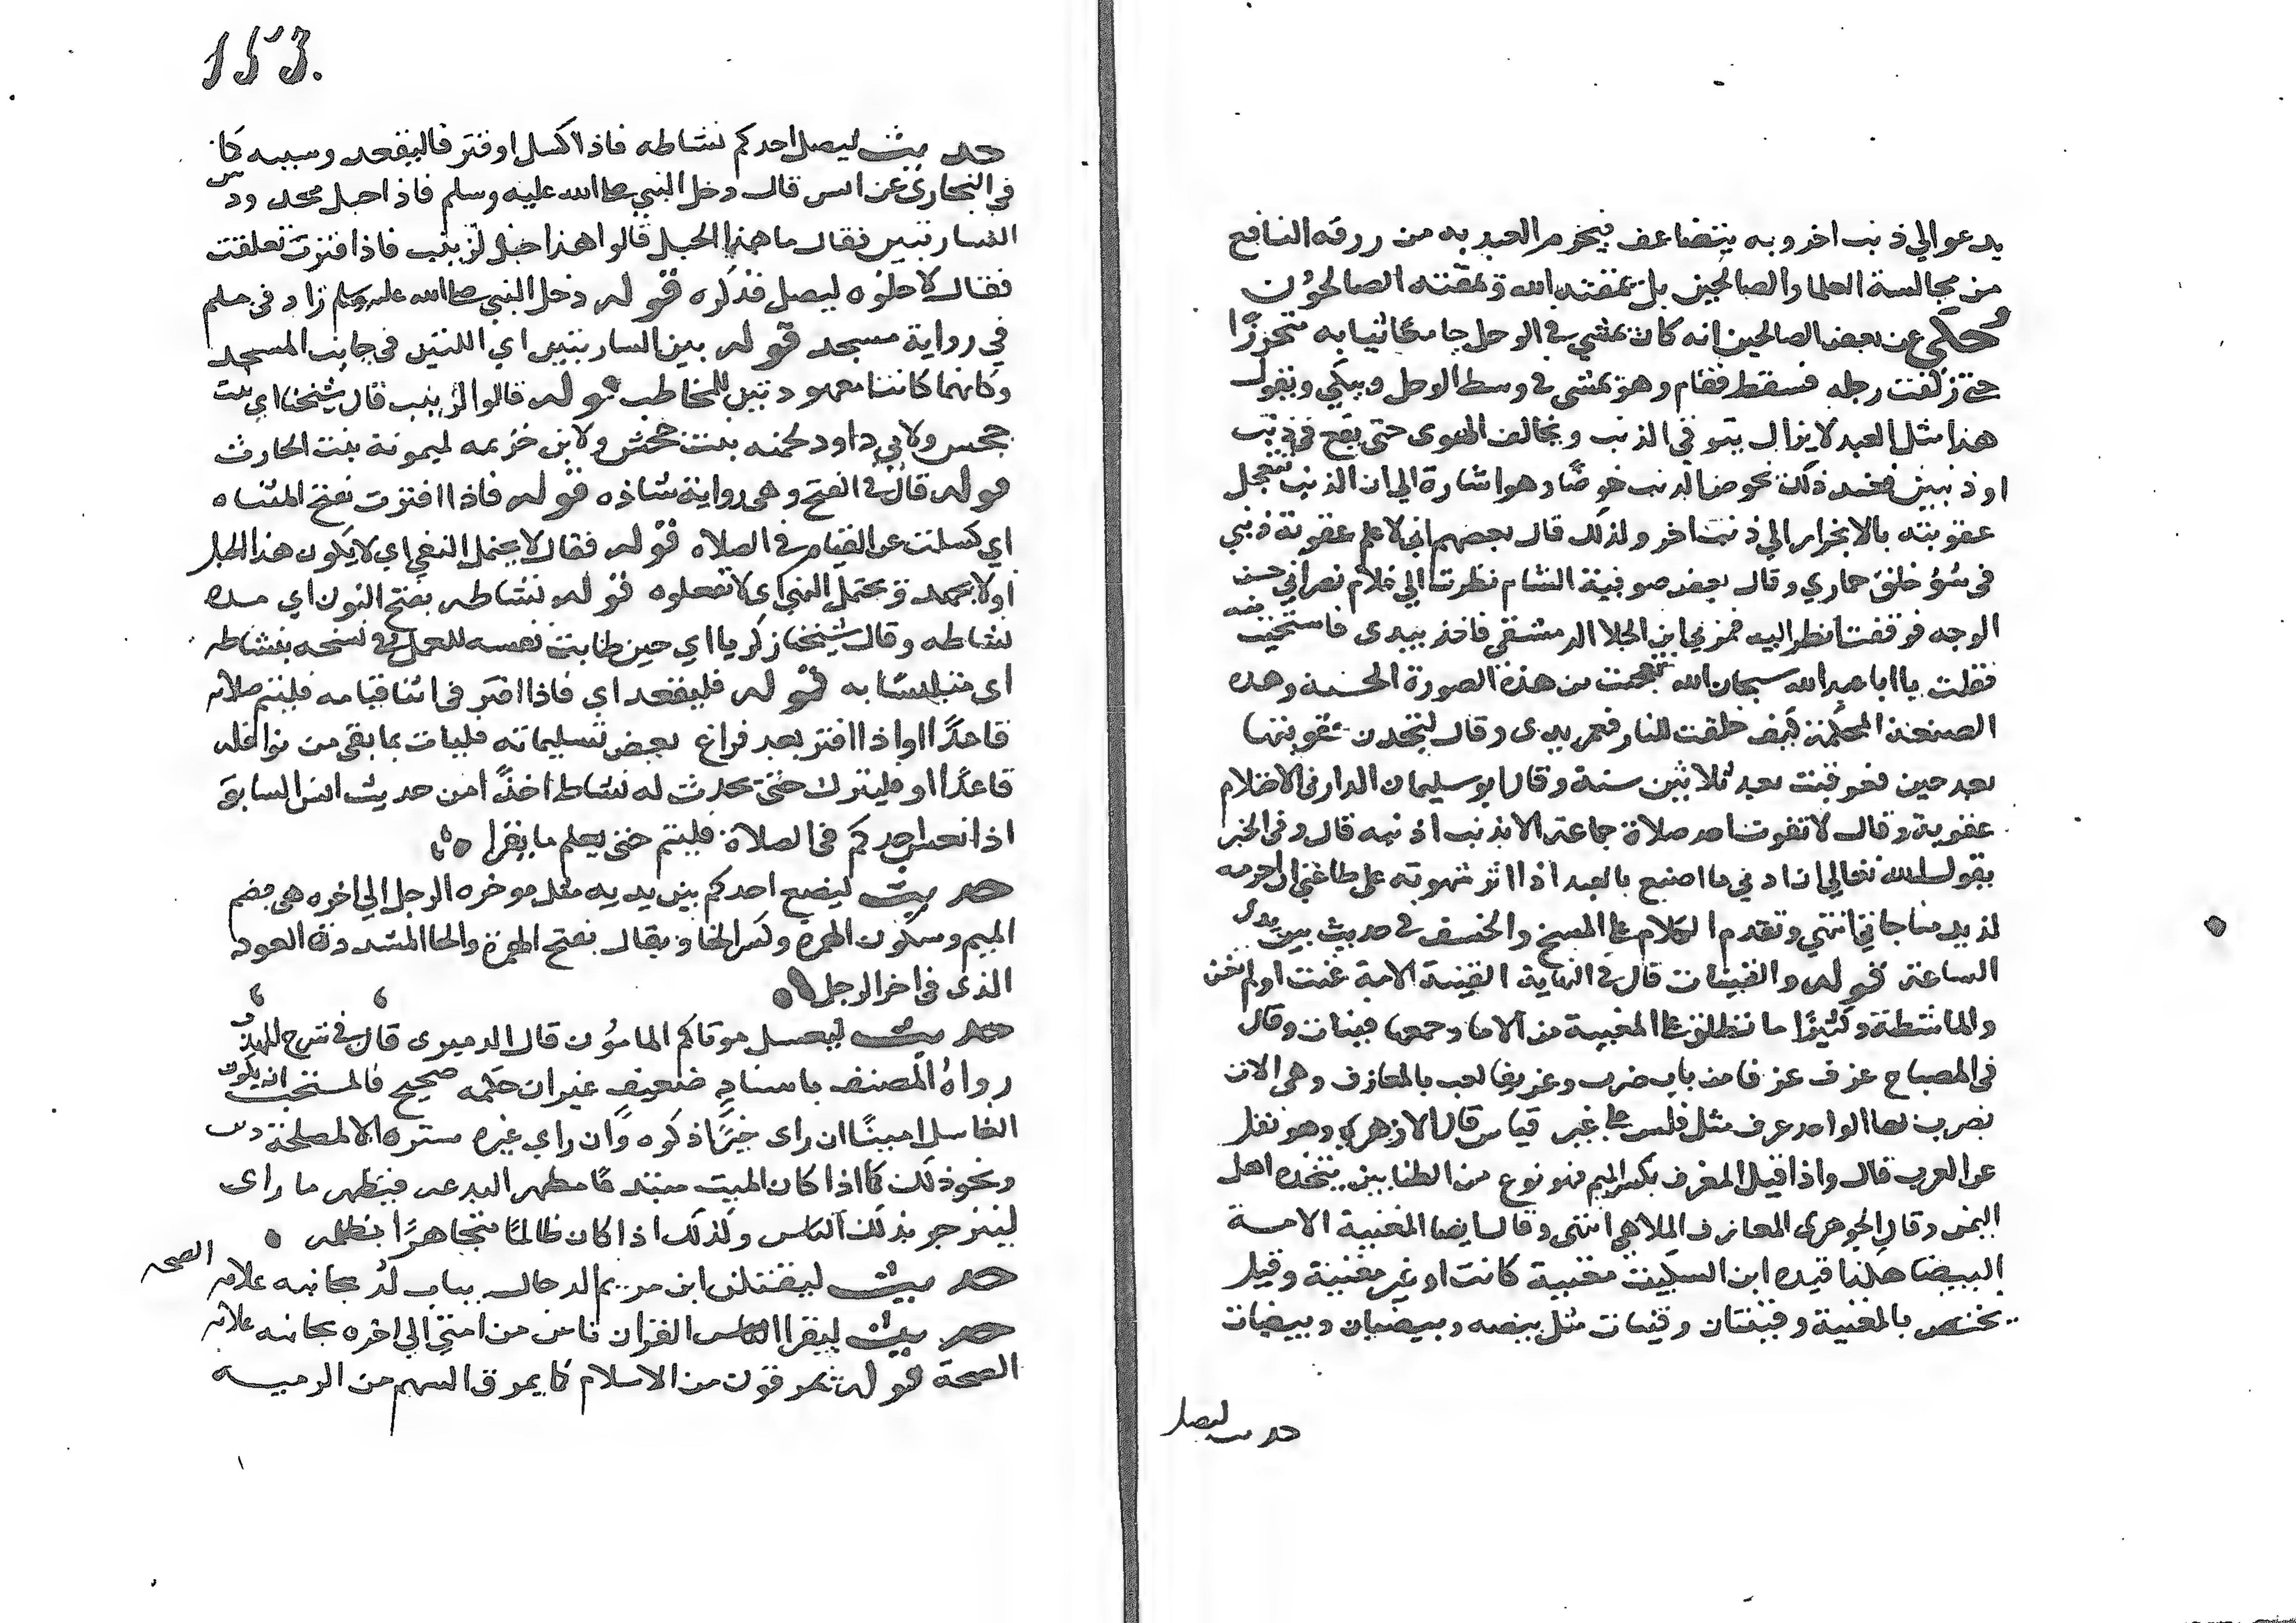 يدعوالي ذنب اخر وبه يتضاعف فيحرم العبد به من رزقه النافع
من مجالسة العلما والصالحين بل يمقته الله ويمقته الصالحون
وحكى عن بعض الصالحين انه كان يمشي في الوحل جامعا ثيابه متحرزا
حتى زلقت رجله فسقط فقام وهو يمشى في وسط الوحل ويبكي ويقول
هذا مثل العبد لا يزال يتوقي الذنب ويخالف الهوى حتى يقع في ذنب
او ذنبين فعند ذلك يخوض الذنب خوضا وهو اشارة الي ان الذنب تتعجل
عقوبته بالانجرار الي ذنب اخر ولذلك قال بعضهم اني لاعلم عقوبة ذنبي
في سؤ خلق حماري وقال بعض صوفية الشام نظرت الي غلام نصراني حسن
الوجه فوقفت انظر اليه فمر بي ابن الجلا الدمشقي فاخذ بيدى فاستحييت منه
فقلت يا ابا عبد الله سبحان الله تعجبت من هذه الصورة الحسنة وهذه
الصنعة المحكمة كيف خلقت للنار فغمز يدى وقال لتجدن عقوبتها
بعد حين فعوقبت بعد ثلاثين سنة وقال ابو سليمان الداراني الاحتلام
عقوبة وقال لا تفوت احد صلاة جماعة الا بذنب اذنبه قال وفي الخبر
يقول الله تعالي ان ادني ما اصنع بالعبد اذا اثر شهوته على طاعتي ان احرمه
لذيذ مناجاتي انتهي وتقدم الكلام على المسخ والخسف في حديث بين يدى
الساعة قوله والقينات قال في النهاية القينة الامة غنت او لم تغن
والماشطة وكثيرا ما تطلق على المغنية من الاما وجمعها قينات وقال
في المصباح عزف عزفا من باب ضرب وعزيفا لعب بالمعازف وهي الات
يضرب بها الواحد عزف مثل فلس على غير قياس قال الازهري وهو نقل
عن العرب قال واذا قيل المعزف بكسر الميم فهو نوع من الطنابير يتخذه اهل
اليمن وقال الجوهرى المعازف الملاهي انتهى وقال ايضا المغنية الامة
البيضا هكذا قيده ابن السكيت مغنية كانت او غير مغنية وقيل
يختص بالمغنية وقينتان وقينات مثل بيضه وبيضتان وبيضات
حديث ليصل
153.
حديث ليصل احدكم نشاطه فاذا كسل او فتر فاليقعد وسببه كما
في البخاري عن انس قال دخل النبي صلى الله عليه وسلم فاذا حبل ممدود بين
الساريتين فقال ما هذا الحبل قالوا هذا حبل لزينب فاذا فترت تعلقت
فقال لا حلوه ليصل فذكره قوله دخل النبي صلى الله عليه وسلم زاد في مسلم
في رواية مسجد قوله بين الساريتين اي اللتين في جانب المسجد
وكانهما كانتا معهودتين للمخاطب قوله قالوا لزينب قال شيخنا اي بنت
جحس ولابي داود لحمنه بنت جحش ولابن خزيمه لميمونة بنت الحارث
قوله قال في الفتح وهي رواية شاذه قوله فاذا افترت بفتح المثناه
اي كسلت عن القيام في الصلاه قوله فقال لا يحتمل النفي اي لا يكون هذا الحبل
اولا يمد ويحتمل النهي اي لا تفعلوه قوله نشاطه بفتح النون اي مده
نشاطه وقال شيخنا زكريا اي حين طابت نفسه للعمل وفي نسخه بنشاطه
اى متلبسا به قوله فليقعد اي فاذا افتر في اثنا قيامه فليتم صلاته
قاعدا او اذا افتر بعد فراغ بعض تسليماته فليات بما بقي من نوافله
قاعدا او فليترك حتى يحدث له نشاط اخذا من حديث انس السابق
اذا نعس احدكم في الصلاة فليتم حتى يعلم ما يقرا
حديث ليضع احدكم بين يديه مثل موخره الرحل الي اخره هي بضم
الميم وسكون الهمزة وكسر الخا ويقال بفتح الهمزة والخا المشددة العود
الذى في اخر الرحل
حديث ليغسل موتاكم المامون قال الدميرى قال في شرح المهذب
رواه المصنف باسناد ضعيف غير ان حكمه صحيح فالمستحب ان يكون
الغاسل امينا ان راى خيرا ذكره وان راي غيره ستره الا لمصلحة
ونحو ذلك كما اذا كان الميت مبتدعا مظهر البدعه فيظهر ما راى
لينزجر بذلك الناس وكذلك اذا كان ظالما متجاهرا بظلمه
حديث ليقتلن ابن مريم الدجال بباب لد بجانبه علامه الصحه
حديث ليقرا الناس القران ناس من امتي الي اخره بجانبه علامه
الصحة قوله يمرقون من الاسلام كما يمرق السهم من الرميه